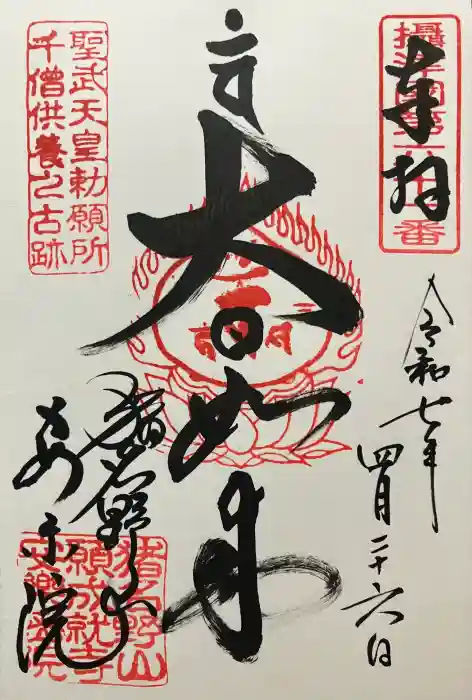 奉拝
攝津國第六十七番
令和七年
四月二十六日
大日如来
聖武天皇勅願所
千僧供養之古跡
猪名野山
安楽院
猪名野山
願成就寺
安樂院